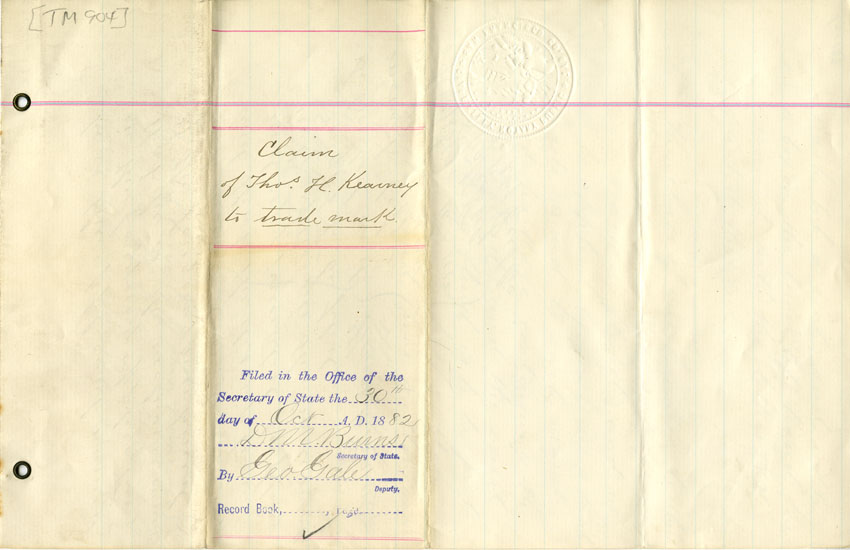 [TM 904]
Claim
of Thos. H. Kearney
to trade mark.
Filed in the Office of the
Secretary of State the 30th
day of Oct A. D. 1882
D M Burns
Secretary of State.
By Geo Gale
Deputy.
Record Book,